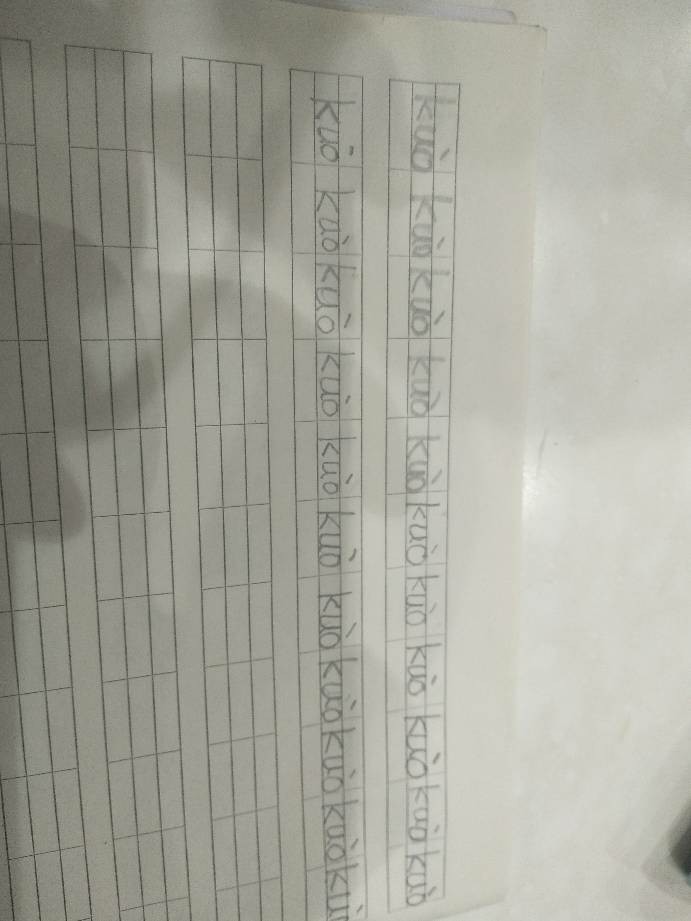 kuò kuò kuò kuò kuò kuò kuò kuò kuò kuò kuò
kuò kuò kuò kuò kuò kuò kuò kuò kuò kuò kù